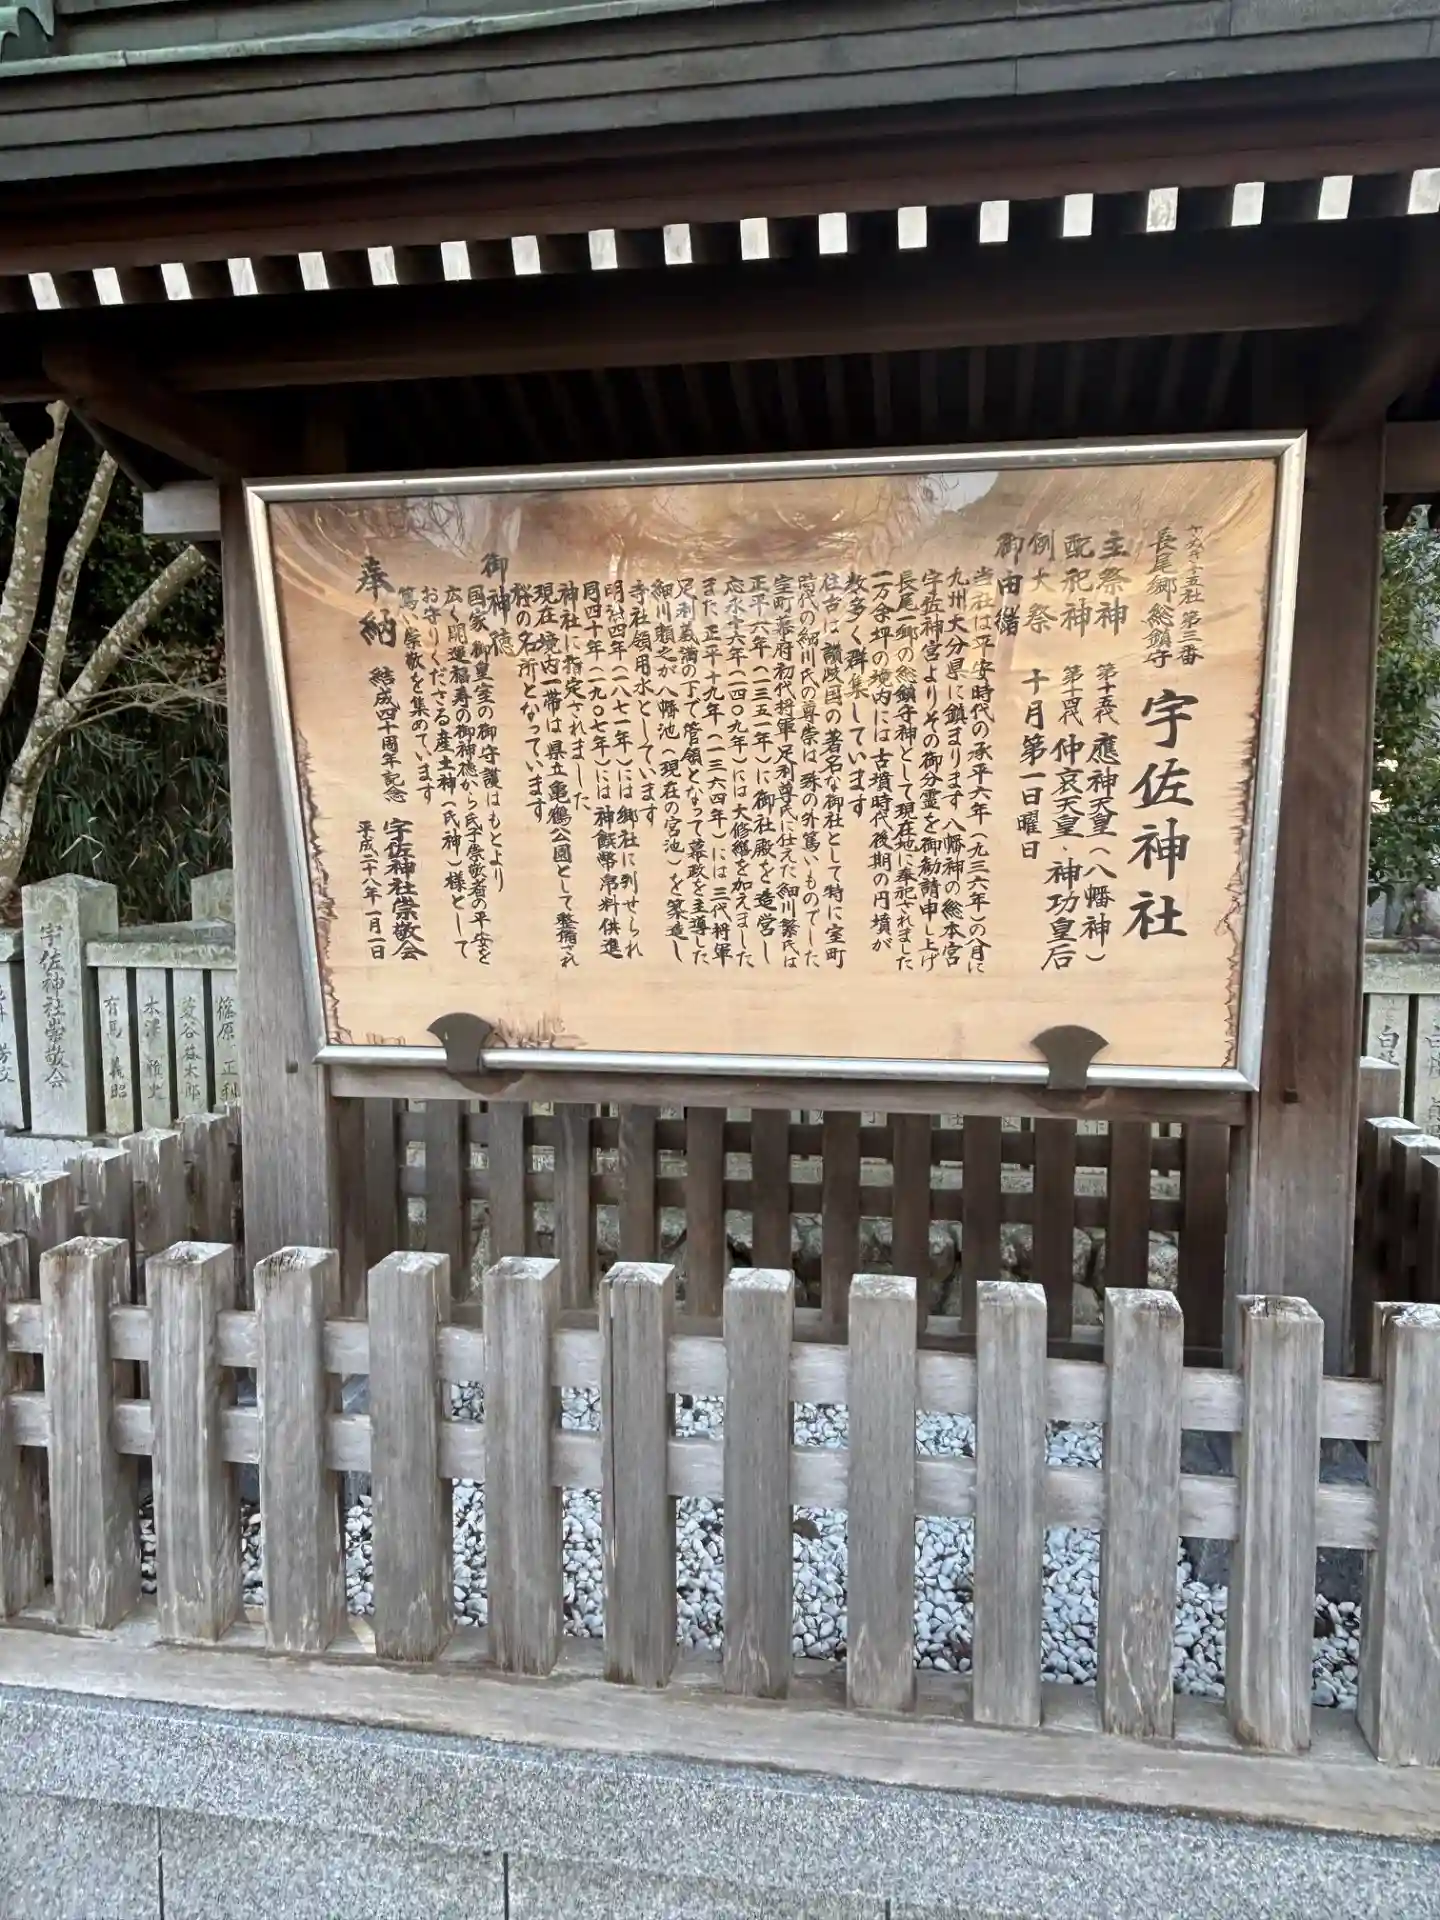 やぬき十五社 第三番
長尾郷総鎮守
宇佐神社
主祭神 第十五代 應神天皇(八幡神)
配祀神 第十四代 仲哀天皇・神功皇后
例大祭 十月第一日曜日
御由緒
当社は平安時代の承平六年(九三六年)の八月に
九州大分県に鎮まります八幡神の総本宮
宇佐神宮よりその御分霊を御勧請申し上げ
長尾一郷の総鎮守神として現在地に奉祀されました
二万余坪の境内には古墳時代後期の円墳が
数多く群集しています
往古は讃岐国の著名な御社として特に室町
時代の細川氏の尊崇は殊の外篤いものでした
室町幕府初代将軍足利尊氏に仕えた細川繁氏は
正平六年(一三五一年)に御社殿を造営し
応永十六年(一四〇九年)には大修繕を加えました
また正平十九年(一三六四年)には三代将軍
足利義満の下で管領となって幕政を主導した
細川頼之が八幡池(現在の宮池)を築造し
寺社領用水としています
明治四年(一八七一年)には郷社に列せられ
同四十年(一九〇七年)には神饌幣帛料供進
神社に指定されました
現在境内一帯は県立亀鶴公園として整備され
桜の名所となっています
御神徳
国家・御皇室の御守護はもとより
広く開運福寿の御神徳から氏子崇敬者の平安を
お守りくださる産土神(氏神)様として
篤い崇敬を集めています
奉納 結成四十周年記念 宇佐神社崇敬会
平成二十八年一月一日
宇佐神社崇敬会
有馬 義昭
木津 雅史
菱谷益太郎
篠原 正利